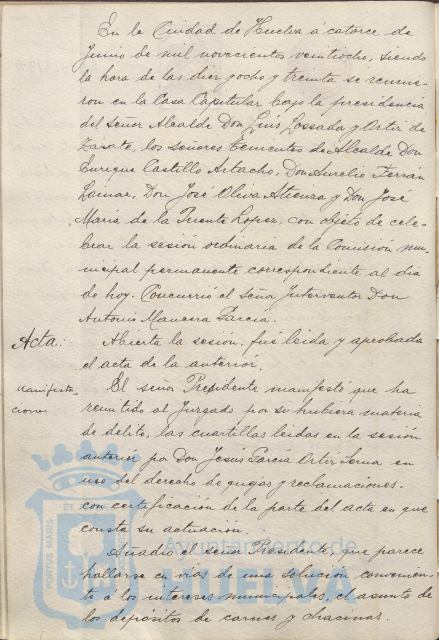 En la Ciudad de Huelva á catorce de
Junio de mil novecientos veintiocho, siendo
la hora de las diez y ocho y treinta se reunie-
ron en la Casa Capitular bajo la presidencia
del Señor Alcalde Don Luis Lossada y Ortiz de
Zarate, los señores Tenientes de Alcalde Don
Enrique Castillo Artacho, Don Aurelio Terrán
Don José Oliva Atienza y Don José
Maria de la Puente Lopez, con objeto de cele-
brar la sesión ordinaria de la Comisión mu-
nicipal permanente correspondiente al dia
de hoy. Concurrió el Señor Interventor Don
Antonio Garcia.
Acta: Abierta la sesión, fué leida y aprobada
el acta de la anterior.
Manifesta- El señor Presidente manifestó que ha
ciones remitido al Juzgado por si hubiera materia
de delito, las cuartillas leidas en la sesión
anterior por Don Jesús Garcia Ortiz Serna en
uso del derecho de quejas y reclamaciones,
con certificación de la parte del acta en que
consta su actuación.
Añadió el señor Presidente, que parece
hallarse en vias de una solución convenien-
te á los intereses municipales, el asunto de
los depósitos de carnes y chacinas.
PORTUS MARIS ET
Ayuntamiento de
HUELVA